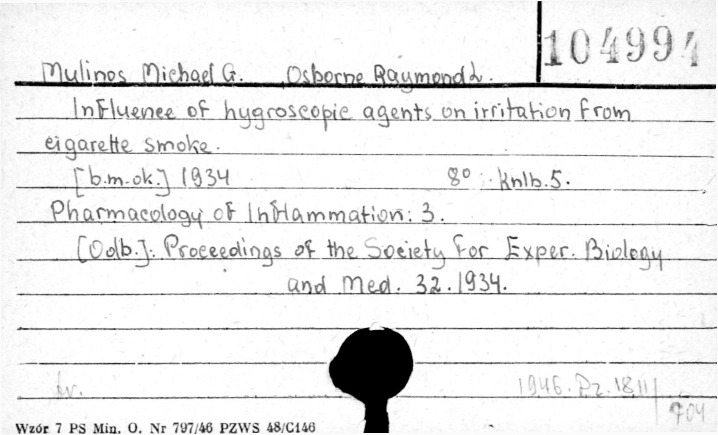 104994
Mulinos Michael G. Osborne Raymond L.
Influence of hygroscopic agents on irritation from
cigarette smoke.
[b.m.ok.] 1934 8° Knlb. 5.
Pharmacology of Inflammation: 3.
[Odb.]: Proceedings of the Society for Exper. Biology
and Med. 32. 1934.
1946. Pz. 18.11
704
Wzór 7 PS Min. O. Nr 797/46 PZWS 48/C146